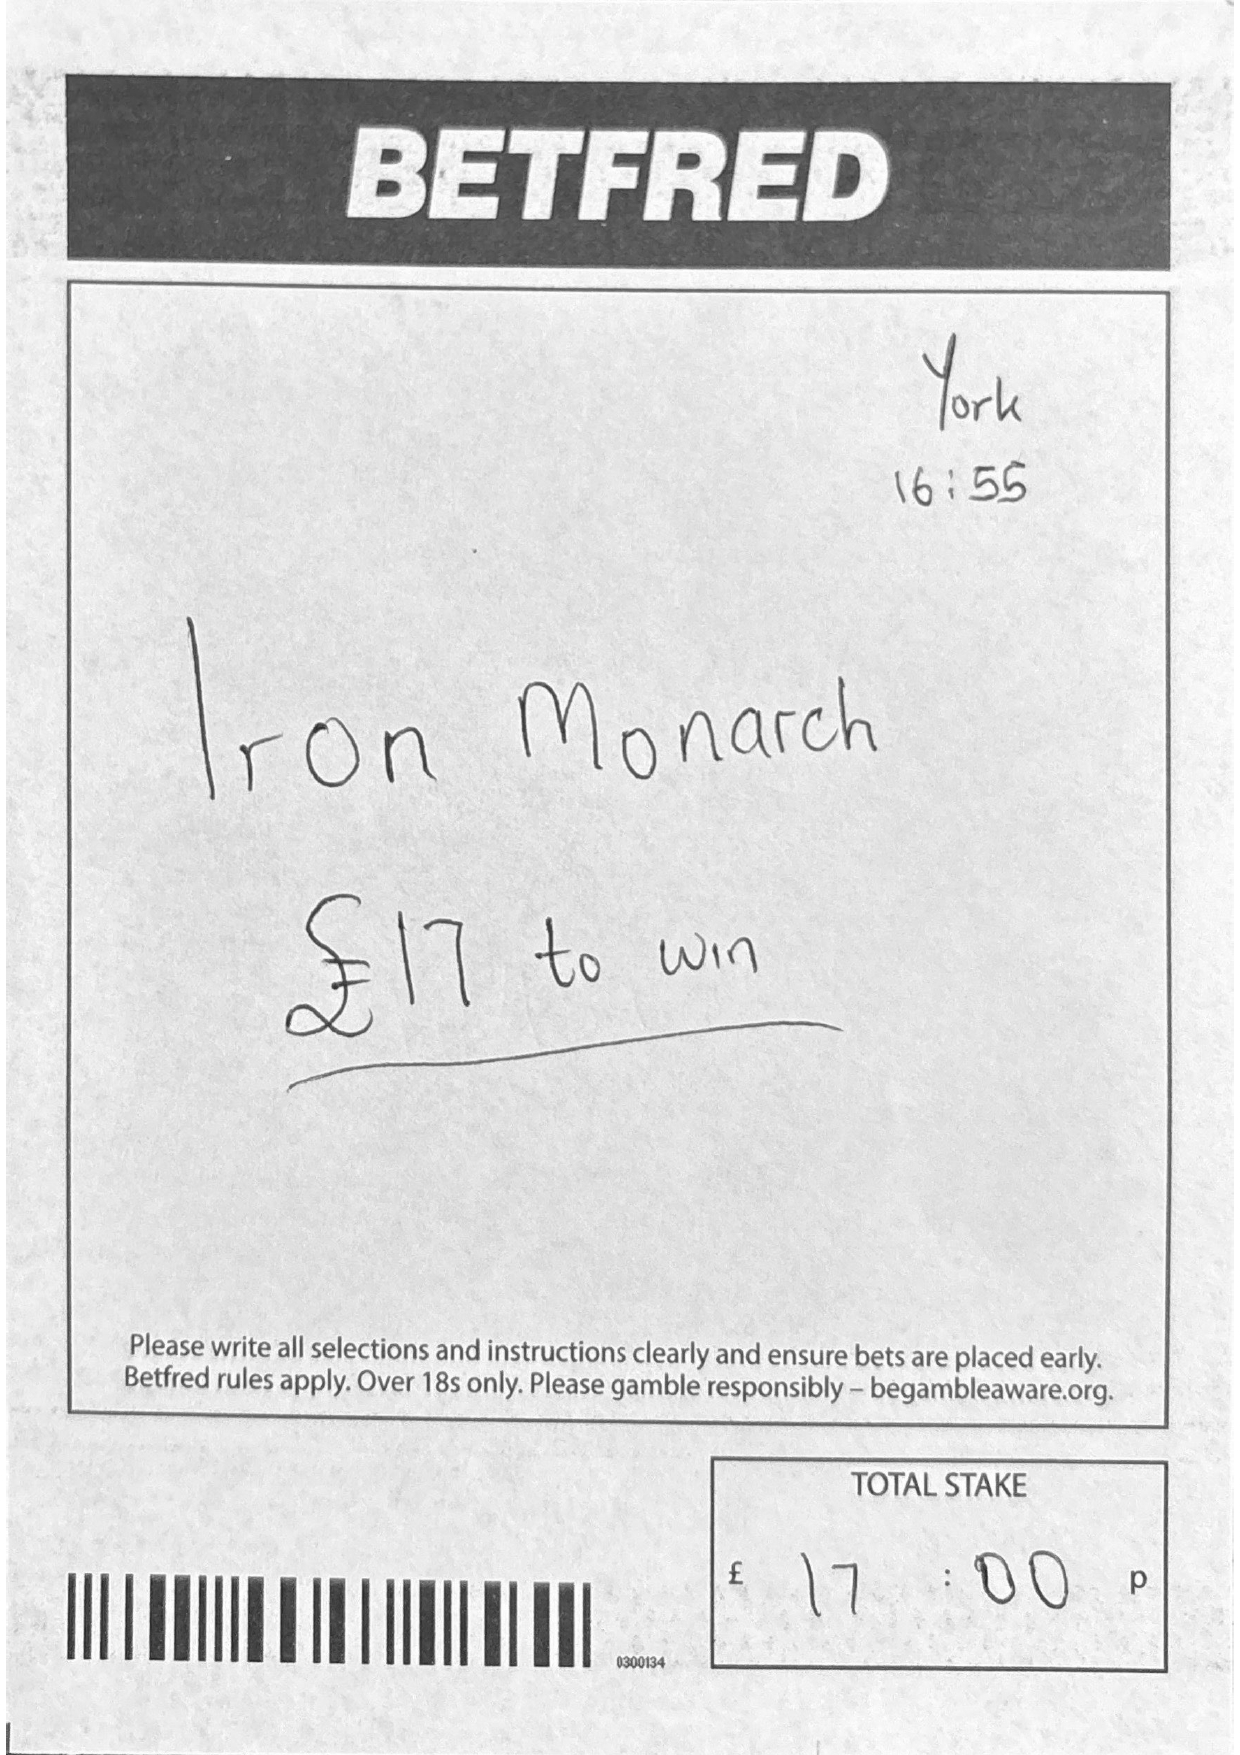 BETFRED
York
16:55
Iron Monarch
£17 to win
Please write all selections and instructions clearly and ensure bets are placed early.
Betfred rules apply. Over 18s only. Please gamble responsibly – begambleaware.org.
TOTAL STAKE
£ 17 : 00 p
0300134